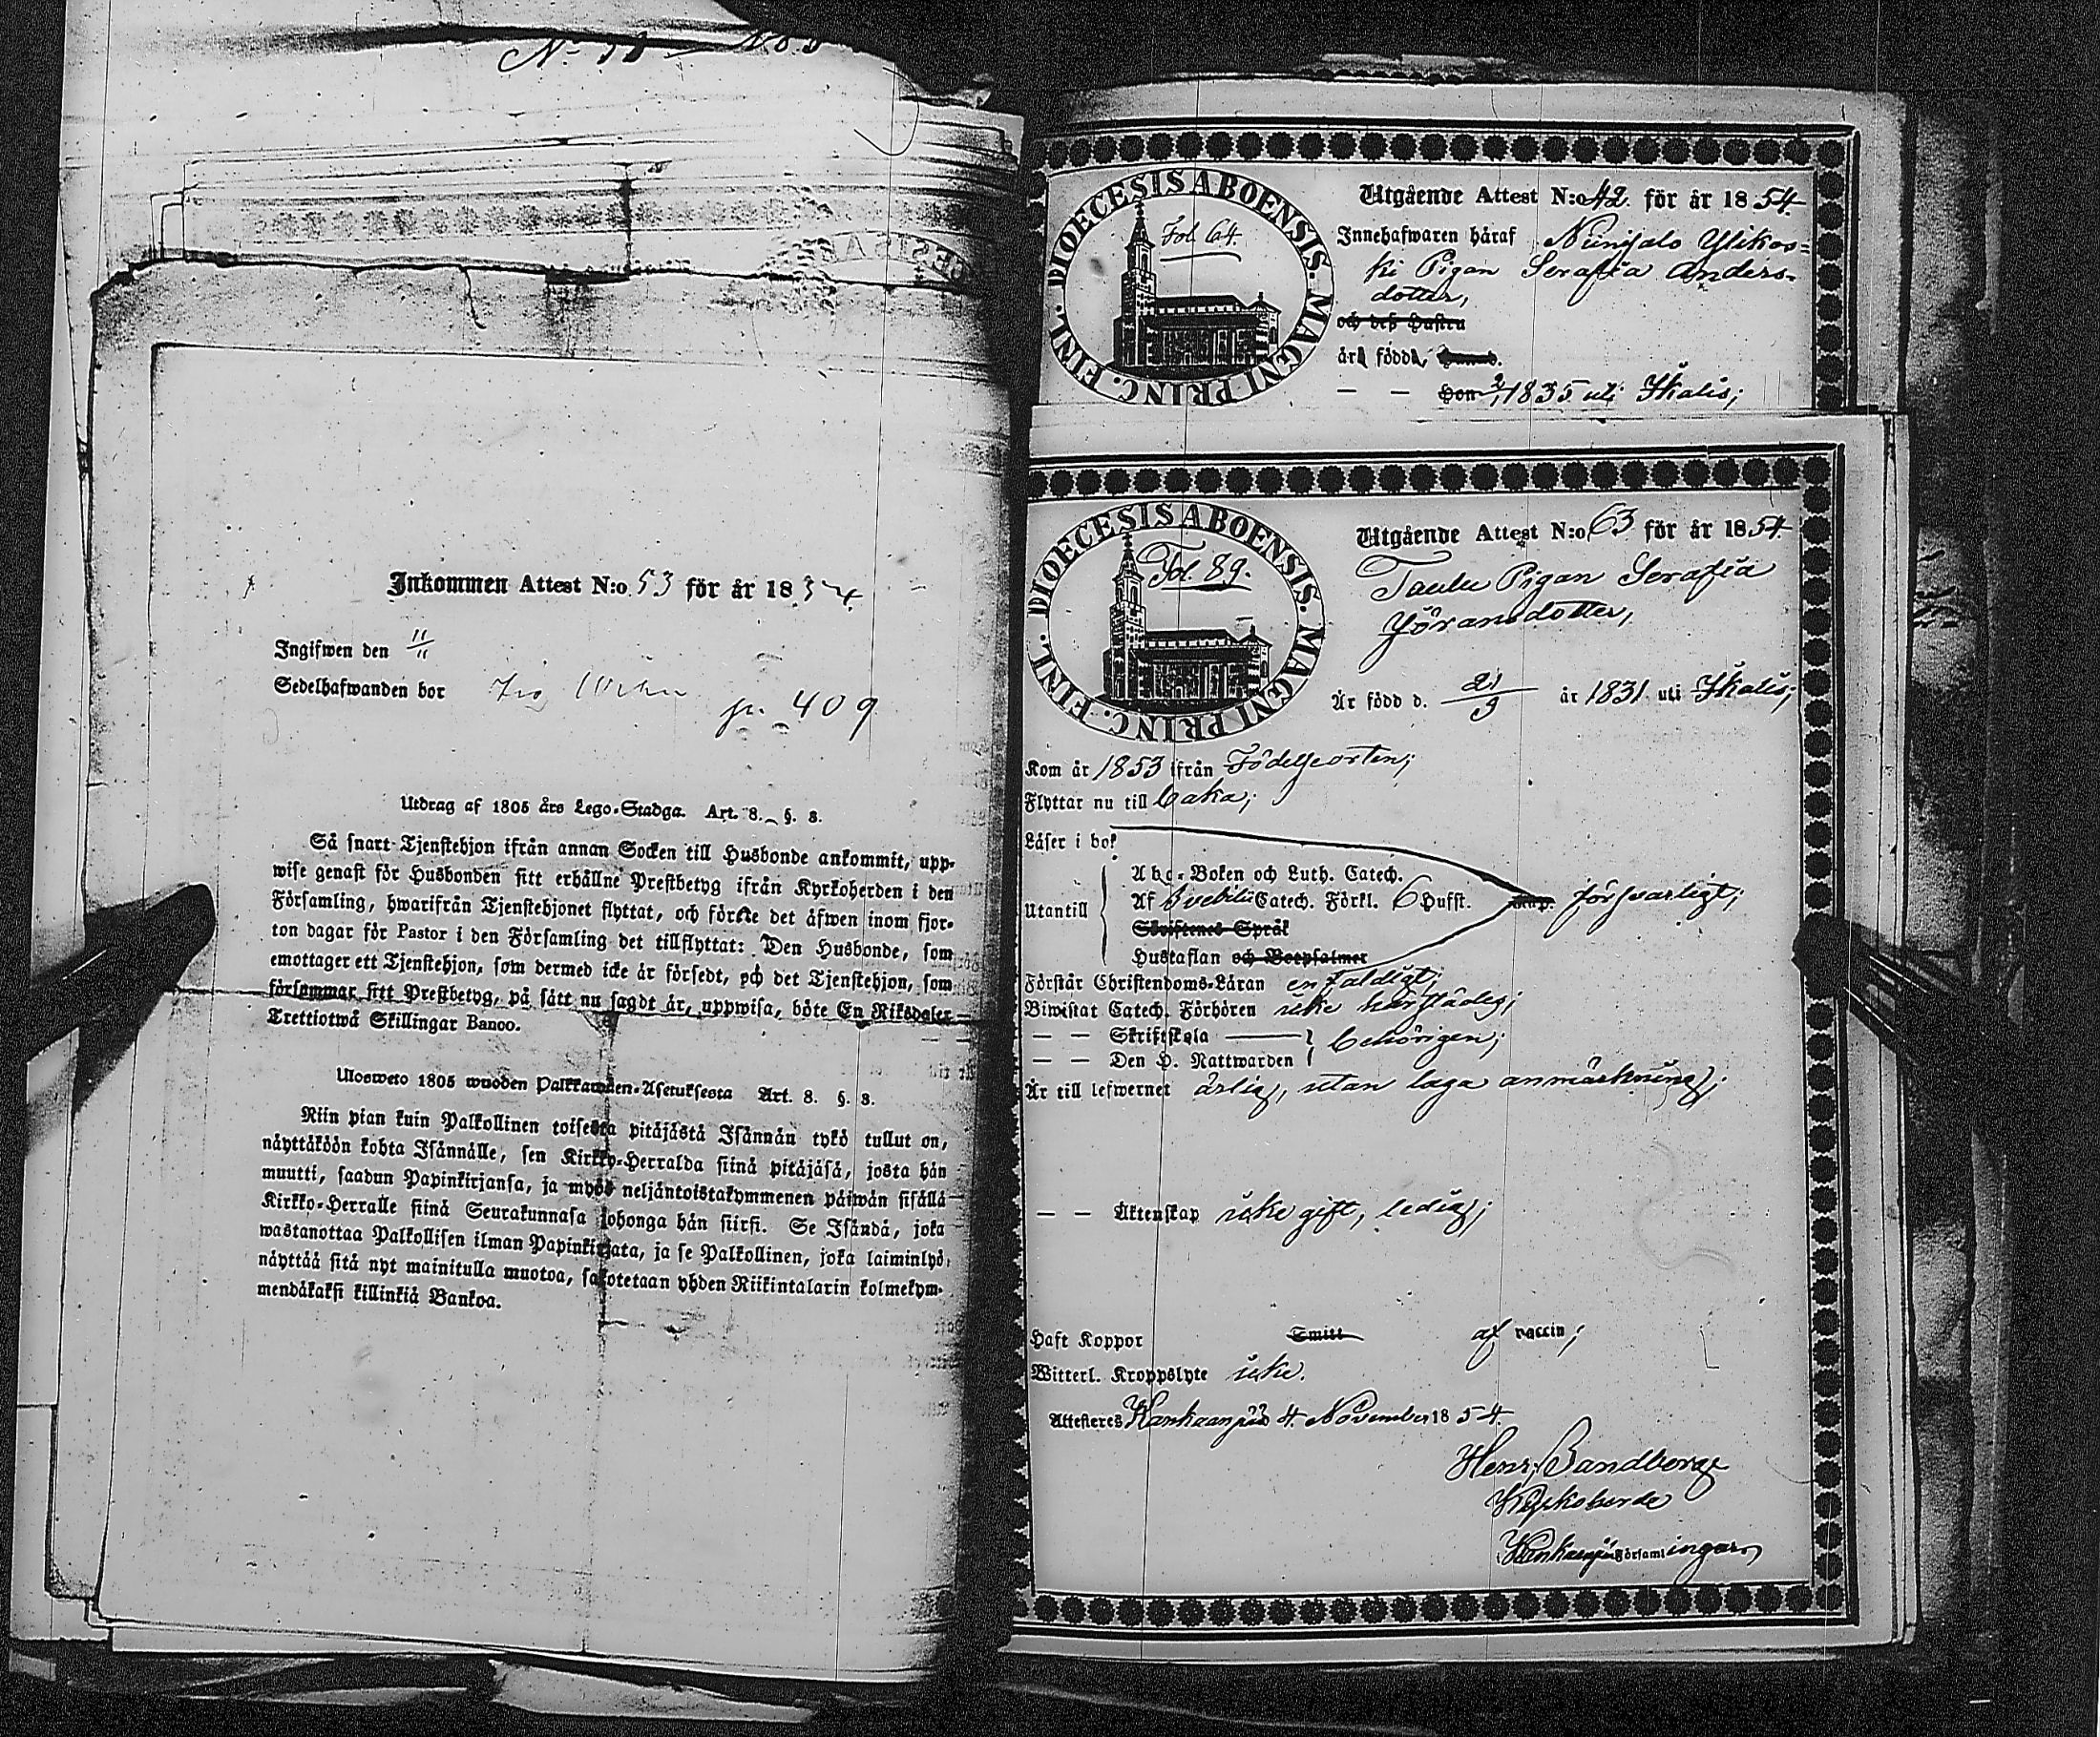 Inkommen Attest N:o 53 för år 18
Ingifwen den 11/11
Sedelhafwanden bor
p. 409
Utdrag af 1805 års Lego-Stadga. Art. 8. §. 8.
Så snart Tjenstehjon ifrån annan Socken till Husbonde ankommit, upp-
wise genast för Husbonden sitt erhållne Prestbetyg ifrån Kyrkoherden i den
Församling, hwarifrån Tjenstehjonet flyttat, och förete det äfwen inom fjor-
ton dagar för Pastor i den Församling det tillflyttat: Den Husbonde, som
emottager ett Tjenstehjon, som dermed icke är försedt, och det Tjenstehjon, som
försummar sitt Prestbetyg, på sätt nu sagdt är, uppwisa, böte En Riksdaler
Trettiotwå Skillingar Banco.
Ulosweto 1805 wuoden Palkkawäen-Asetuksesta Art. 8. §. 8.
Niin pian kuin Palkollinen toisesta pitäjästä Isännän tykö tullut on,
näyttäköön kohta Isännälle, sen Kirkko-Herralda siinä pitäjäsä, josta hän
muutti, saadun Papinkirjansa, ja myös neljäntoistakymmenen päiwän sisällä
Kirkko-Herralle siinä Seurakunnasa johonga hän siirsi. Se Isändä, joka
wastanottaa Palkollisen ilman Papinkirjata, ja se Palkollinen, joka laiminlyö
näyttää sitä nyt mainitulla muotoa, sakotetaan yhden Riikintalarin kolmekym-
mendäkaksi killinkiä Bankoa.
DIOECESIS ABOENSIS. MAGNI PRINC. FINL.
Fol. 64.
Utgående Attest N:o 42. för år 1854.
Innehafwaren häraf Niinisalo Ylikos-
ki Pigan Serafia Anders-
dotter,
och dess Hustru
är född,
Hon 1835 uti Ikalis;
DIOECESIS ABOENSIS. MAGNI PRINC. FINL.
Fol. 89.
Utgående Attest N:o 63 för år 1854.
Pigan Serafia
Göransdotter,
Är född d. 21/9 år 1831 uti Ikalis;
Kom år 1853 ifrån Födelseorten;
Flyttar nu till baka;
Läser i bok
Utantill
Abc-Boken och Luth. Catech.
Af Svebilii Catech. Förkl. 6 Hufst. försvarligt;
Skriftenes Språk
Hustaflan och Botpsalmer
Förstår Christendoms-Läran enfaldigt;
Biwistat Catech. Förhören icke härstädes;
— — Skriftskola
— — Den H. Nattwarden behörigen;
Är till lefwernet ärlig, utan laga anmärkning;
— — Äktenskap icke gift, ledig;
Haft Koppor Smitt af vaccin;
Witterl. Kroppslyte icke.
Attesteres Kankaanpää 4 November 1854.
Henr. Sandberg
Kyrkoherde
i Kankaanpää Församlingar